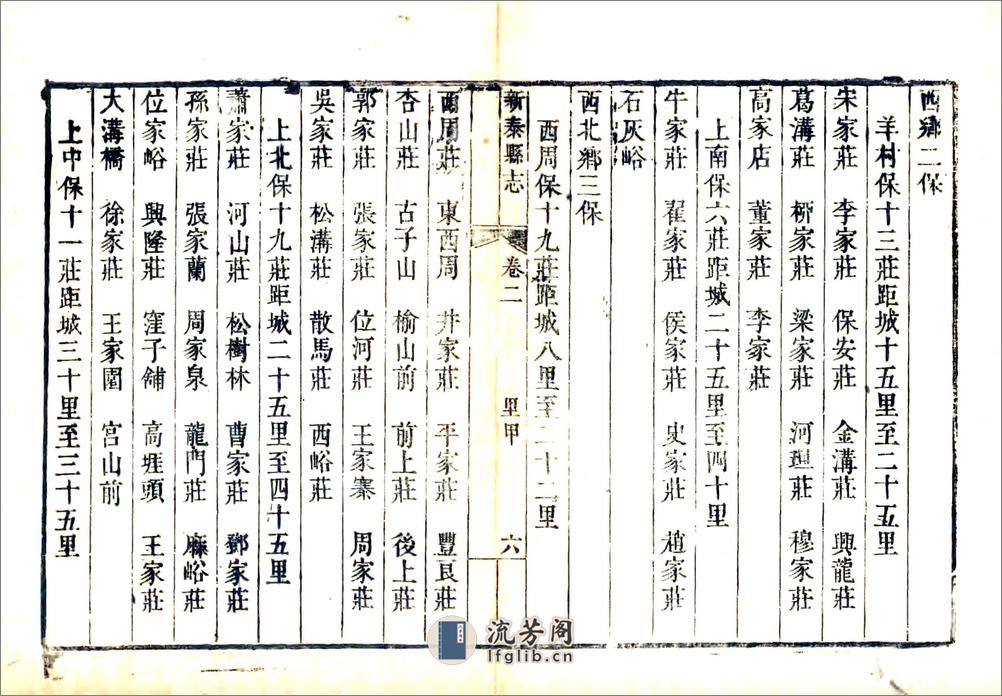 西鄉二保
羊村保十三莊距城十五里至二十五里
宋家莊 李家莊 保安莊 金溝莊 興龍莊
葛溝莊 柳溝莊 梁家莊 河理莊 穆家莊
高家店 董家莊 李家莊
上南保六莊距城二十五里至四十里
牛家莊 翟家莊 侯家莊 史家莊 趙家莊
石灰峪
西北鄉三保
西周保十九莊距城八里至二十二里
新泰縣志 卷二 里甲 六
西周莊 東西周 井家莊 平家莊 豐良莊
杏山莊 古子山 榆山前 前上莊 後上莊
郭家莊 張家莊 位河莊 王家寨 周家莊
吳家莊 松溝莊 散馬莊 西峪莊
上北保十九莊距城二十五里至四十五里
蕭家莊 河山莊 松樹林 曹家莊 鄧家莊
孫家莊 張家蘭 周家泉 龍門莊 麻峪莊
位家峪 興隆莊 窪子舖 高崖頭 王家莊
大溝橋 徐家莊 王家圍 宮山前
上中保十一莊距城三十里至三十五里
流芳阁
lfglib.cn